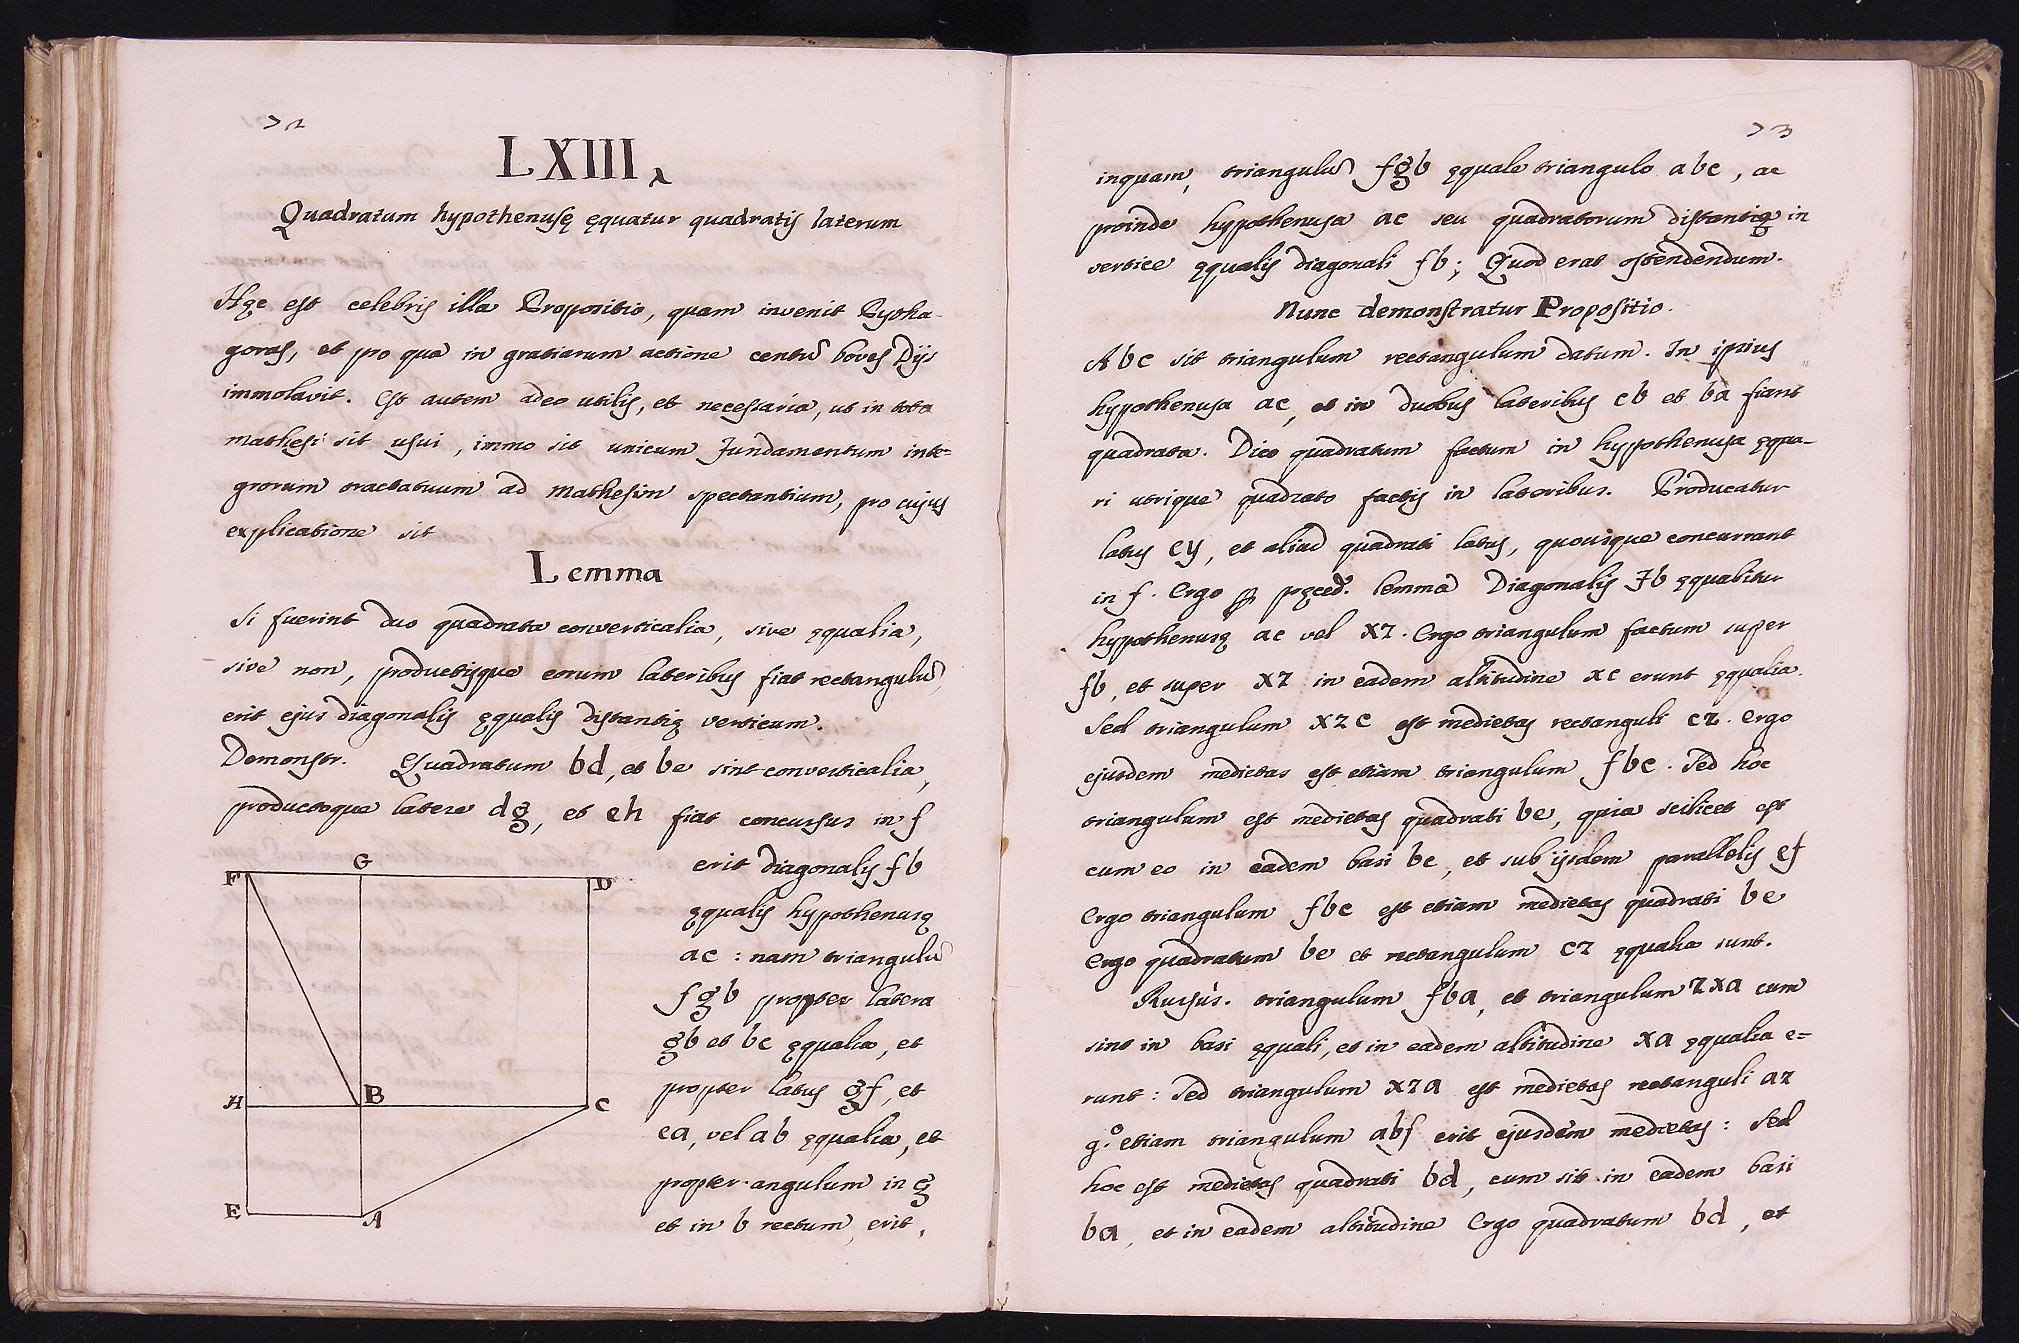 72
LXIII.
Quadratum hypothenusę ęquatur quadratis laterum
Hęc est celebris illa Propositio, quam invenit Pytha-
goras, et pro qua in gratiarum actione centũ boves Dijs
immolavit. Est autem adeo utilis, et necessaria, ut in tota
mathesi sit usui, immo sit unicum fundamentum inte-
grorum tractatuum ad mathesim spectantium, pro cujus
explicatione sit
Lemma
Si fuerint duo quadrata converticalia, sive ęqualia,
sive non, productisque eorum lateribus fiat rectangulũ,
erit ejus diagonalis ęqualis distantię verticum.
Demonstr. Quadratum bd, et be sint converticalia,
productoque latere dg, et eh fiat concursus in f
erit diagonalis fb
ęqualis hypothenusę
ac : nam triangulũ
fgb propter latera
gb et bc ęqualia, et
propter latus gf, et
ea, vel ab ęqualia, et
propter angulum in g
et in b rectum, erit,
F
G
D
H
B
C
E
A
73
inquam, triangulũ fgb ęquale triangulo abc, ac
proinde hypothenusa ac seu quadratorum distantię in
vertice ęqualis diagonali fb; Quod erat ostendendum.
Nunc demonstratur Propositio.
Abc sit triangulum rectangulum datum. In ipsius
hypothenusa ac, et in duobus lateribus cb et ba fiant
quadrata. Dico quadratum factum in hypothenusa ęqua-
ri utrique quadrato factis in lateribus. Producatur
latus cy, et aliud quadrati latus, quousque concurrant
in f. Ergo p pręced. lemma Diagonalis fb ęquabitur
hypothenusę ac vel xz. Ergo triangulum factum super
fb, et super xz in eadem altitudine xc erunt ęqualia.
Sed triangulum xzc est medietas rectanguli cz. Ergo
ejusdem medietas est etiam triangulum fbc. Sed hoc
triangulum est medietas quadrati be, quia scilicet est
cum eo in eadem basi bc, et sub ijsdem parallelis ef
Ergo triangulum fbc est etiam medietas quadrati be
Ergo quadratum be et rectangulum cz ęqualia sunt.
Rursus. triangulum fba, et triangulum zxa cum
sint in basi ęquali, et in eadem altitudine xa ęqualia e=
runt : Sed triangulum xza est medietas rectanguli az
g.º etiam triangulum abf erit ejusdem medietas : Sed
hoc est medietas quadrati bd, cum sit in eadem basi
ba, et in eadem altitudine Ergo quadratum bd, et